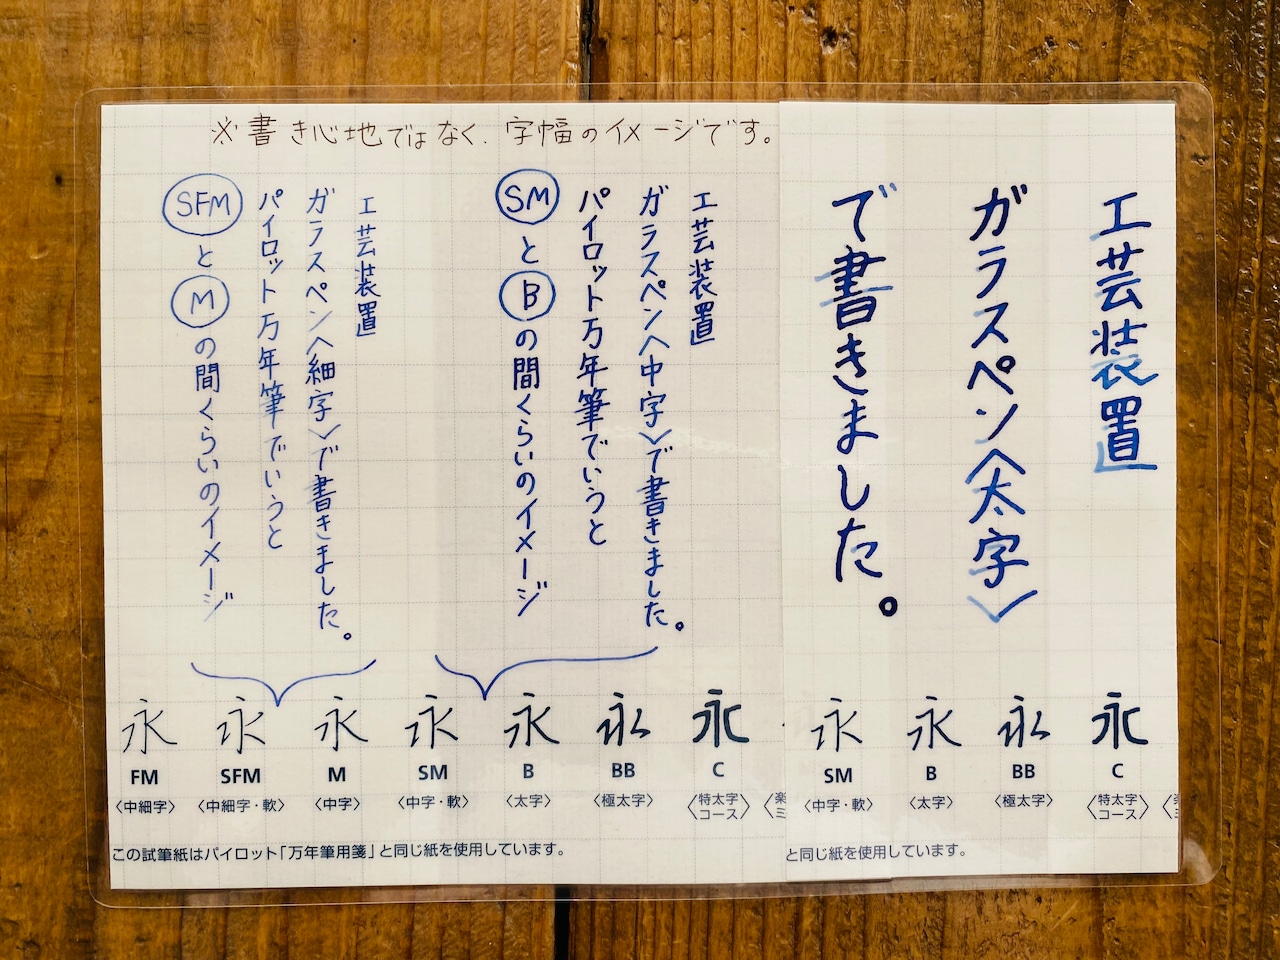 ※書き心地ではなく、字幅のイメージです。
工芸装置
ガラスペン〈太字〉
で書きました。
工芸装置
ガラスペン〈中字〉で書きました。
パイロット万年筆でいうと
SMとBの間くらいのイメージ
工芸装置
ガラスペン〈細字〉で書きました。
パイロット万年筆でいうと
SFMとMの間くらいのイメージ
永 永 永 永 永 永 永
FM SFM M SM B BB C
〈中細字〉 〈中細字・軟〉 〈中字〉 〈中字・軟〉 〈太字〉 〈極太字〉 〈特太字 コース〉
この試筆紙はパイロット「万年筆用箋」と同じ紙を使用しています。
永 永 永 永
SM B BB C
〈中字・軟〉 〈太字〉 〈極太字〉 〈特太字 コース〉
と同じ紙を使用しています。